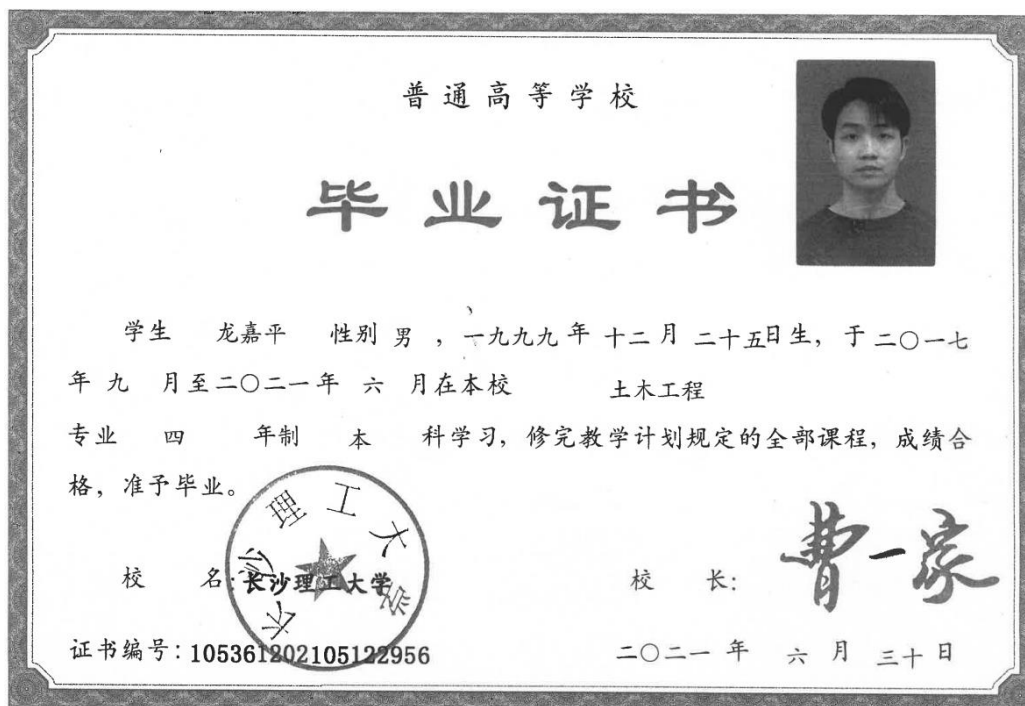 普通高等学校
毕业证书
学生 龙嘉平 性别 男 ，一九九九年 十二月 二十五日生，于二〇一七
年 九 月至二〇二一年 六 月在本校 土木工程
专业 四 年制 本 科学习，修完教学计划规定的全部课程，成绩合
格，准予毕业。
长沙理工大学
校 名：长沙理工大学
校 长：曹一家
证书编号：105361202105122956
二〇二一 年 六 月 三十日